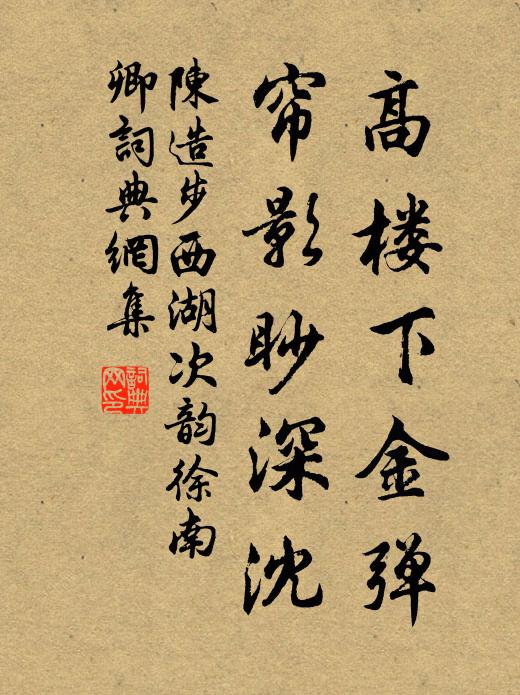 高楼下金弹
帘影眇深沈
陳造步西湖次韵徐南
卿詞典網集
詞典
网印